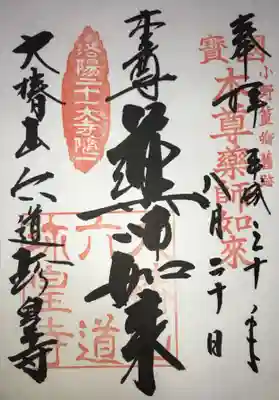 奉拝 平成三十年
八月二十日
小野篁旧跡
国寶
本尊藥師如來
本尊 薬師如来
洛陽二十一大寺隨一
六道
珍皇寺
大椿山 六道珍皇寺